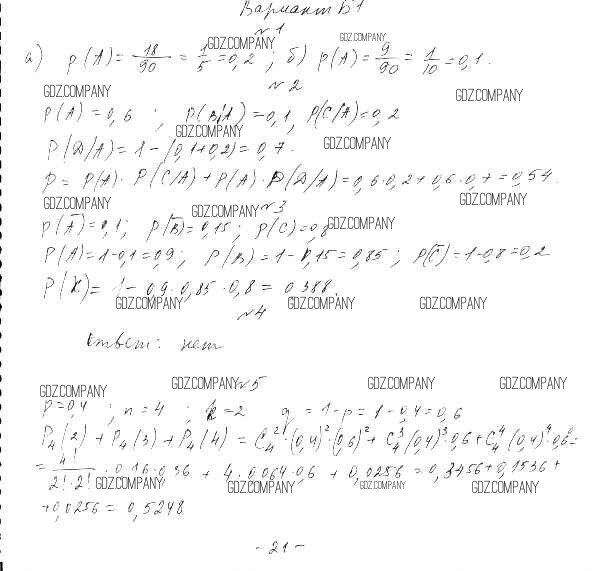 Вариант Б1
№1
а) P(A) = 18/90 = 1/5 = 0,2 ; б) P(A) = 9/90 = 1/10 = 0,1.
GDZ.COMPANY GDZ.COMPANY
№2
GDZ.COMPANY GDZ.COMPANY
P(A) = 0,6 ; P(B/A) = 0,1, P(C/A) = 0,2
GDZ.COMPANY GDZ.COMPANY
P(D/A) = 1 - (0,1+0,2) = 0,7.
P = P(A) · P(C/A) + P(A) · P(D/A) = 0,6·0,2 + 0,6·0,7 = 0,54.
GDZ.COMPANY GDZ.COMPANY GDZ.COMPANY
№3
P(A̅) = 0,1; P(B̅) = 0,15; P(C) = 0,8 GDZ.COMPANY
P(A) = 1-0,1 = 0,9; P(B) = 1-0,15 = 0,85; P(C̅) = 1-0,8 = 0,2
P(X) = 1 - 0,9·0,85·0,8 = 0,388.
GDZ.COMPANY GDZ.COMPANY GDZ.COMPANY
№4
Ответ: нет
GDZ.COMPANY GDZ.COMPANY GDZ.COMPANY GDZ.COMPANY
№5
p = 0,4 ; n = 4 ; k = 2 q = 1-p = 1-0,4 = 0,6
P₄(2) + P₄(3) + P₄(4) = C₄²·(0,4)²·(0,6)² + C₄³(0,4)³·0,6 + C₄⁴(0,4)⁴·0,6⁰ =
= 4!/2!·2! · 0,16·0,36 + 4·0,064·0,6 + 0,0256 = 0,3456 + 0,1536 +
GDZ.COMPANY GDZ.COMPANY GDZ.COMPANY GDZ.COMPANY
+0,0256 = 0,5248
- 21 -